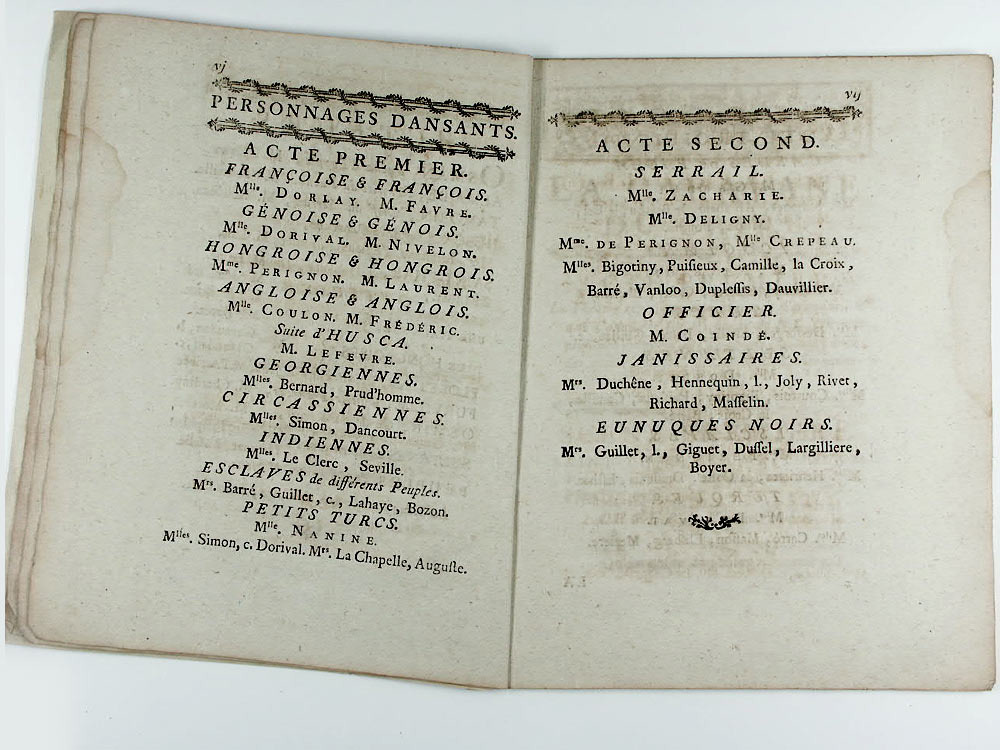 vj
PERSONNAGES DANSANTS.
ACTE PREMIER.
FRANÇOISE & FRANÇOIS.
Mlle. DORLAY. M. FAVRE.
GÉNOISE & GÉNOIS.
Mlle. DORIVAL. M. NIVELON.
HONGROISE & HONGROIS.
Mme. PERIGNON. M. LAURENT.
ANGLOISE & ANGLOIS.
Mlle. COULON. M. FRÉDÉRIC.
Suite d'HUSCA.
M. LEFEVRE.
GEORGIENNES.
Mlles. Bernard, Prud'homme.
CIRCASSIENNES.
Mlles. Simon, Dancourt.
INDIENNES.
Mlles. Le Clerc, Seville.
ESCLAVES de différents Peuples.
Mrs. Barré, Guillet, c., Lahaye, Bozon.
PETITS TURCS.
Mlle. NANINE.
Mlles. Simon, c. Dorival. Mrs. La Chapelle, Auguste.
vij
ACTE SECOND.
SERRAIL.
Mlle. ZACHARIE.
Mlle. DELIGNY.
Mme. DE PERIGNON, Mlle CREPEAU.
Mlles. Bigotiny, Puisieux, Camille, la Croix,
Barré, Vanloo, Duplessis, Dauvillier.
OFFICIER.
M. COINDÉ.
JANISSAIRES.
Mrs. Duchêne, Hennequin, l., Joly, Rivet,
Richard, Masselin.
EUNUQUES NOIRS.
Mrs. Guillet, l., Giguet, Dussel, Largilliere,
Boyer.